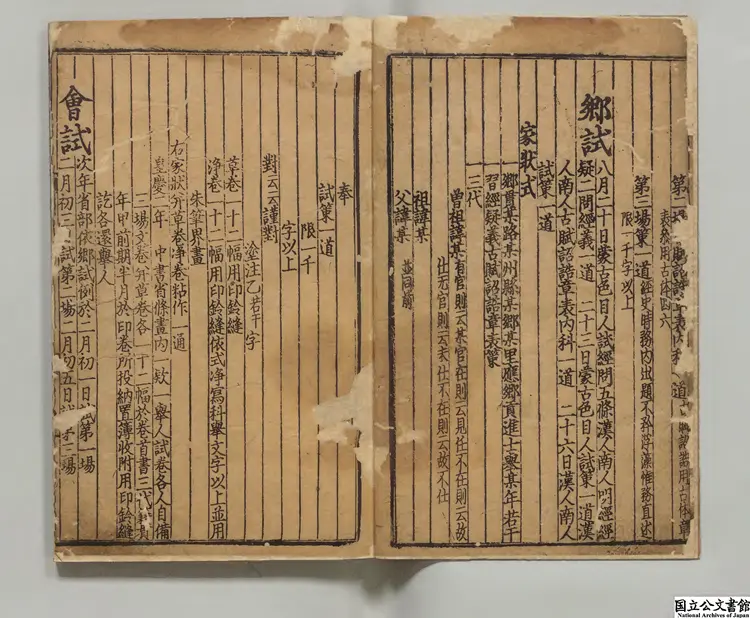 表參用古体四六
第三場策一道經史時務內出題不矜浮藻惟務直述
限一千字以上
鄉試八月二十日蒙古色目人試經問五條漢人南人明經經
疑二問經義一道 二十三日蒙古色目人試策一道漢
人南人古賦詔誥章表內科一道 二十六日漢人南人
試策一道
家狀式
鄉貫某路某州縣某鄉某里應鄉貢進士舉某年若干
習經疑義古賦詔誥章表策
三代
曾祖諱某有官則云某官在則云見任不在則云故
仕元官則云未仕不在則云故不仕
祖諱某 並同前
父諱某
奉
試策一道
限一千
字以上
對云云謹對
塗注乙若干字
草卷一十二幅用印鈐縫
淨卷一十二幅用印鈐縫依式淨寫科舉文字以上並用
朱筆界畫
右家狀并草卷淨卷粘作一通
皇慶二年 中書省條畫內一欵一舉人試卷各人自備
三場文卷并草卷各一十二幅於卷首書三代籍貫
年甲前期半月於印卷所投納置簿收附用印鈐縫
訖各還舉人
會試次年省部依鄉試例於二月初一日試第一場
二月初三日試第二場二月初五日試第三場
国立公文書館
National Archives of Japan